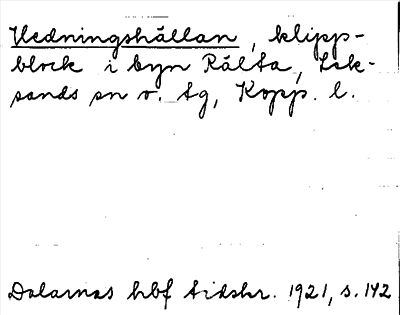 Hedningshällan, klipp-
block i byn Rälta, Lek-
sands sn o. tg, Kopp. l.
Dalarnas hbf tidskr. 1921, s. 142